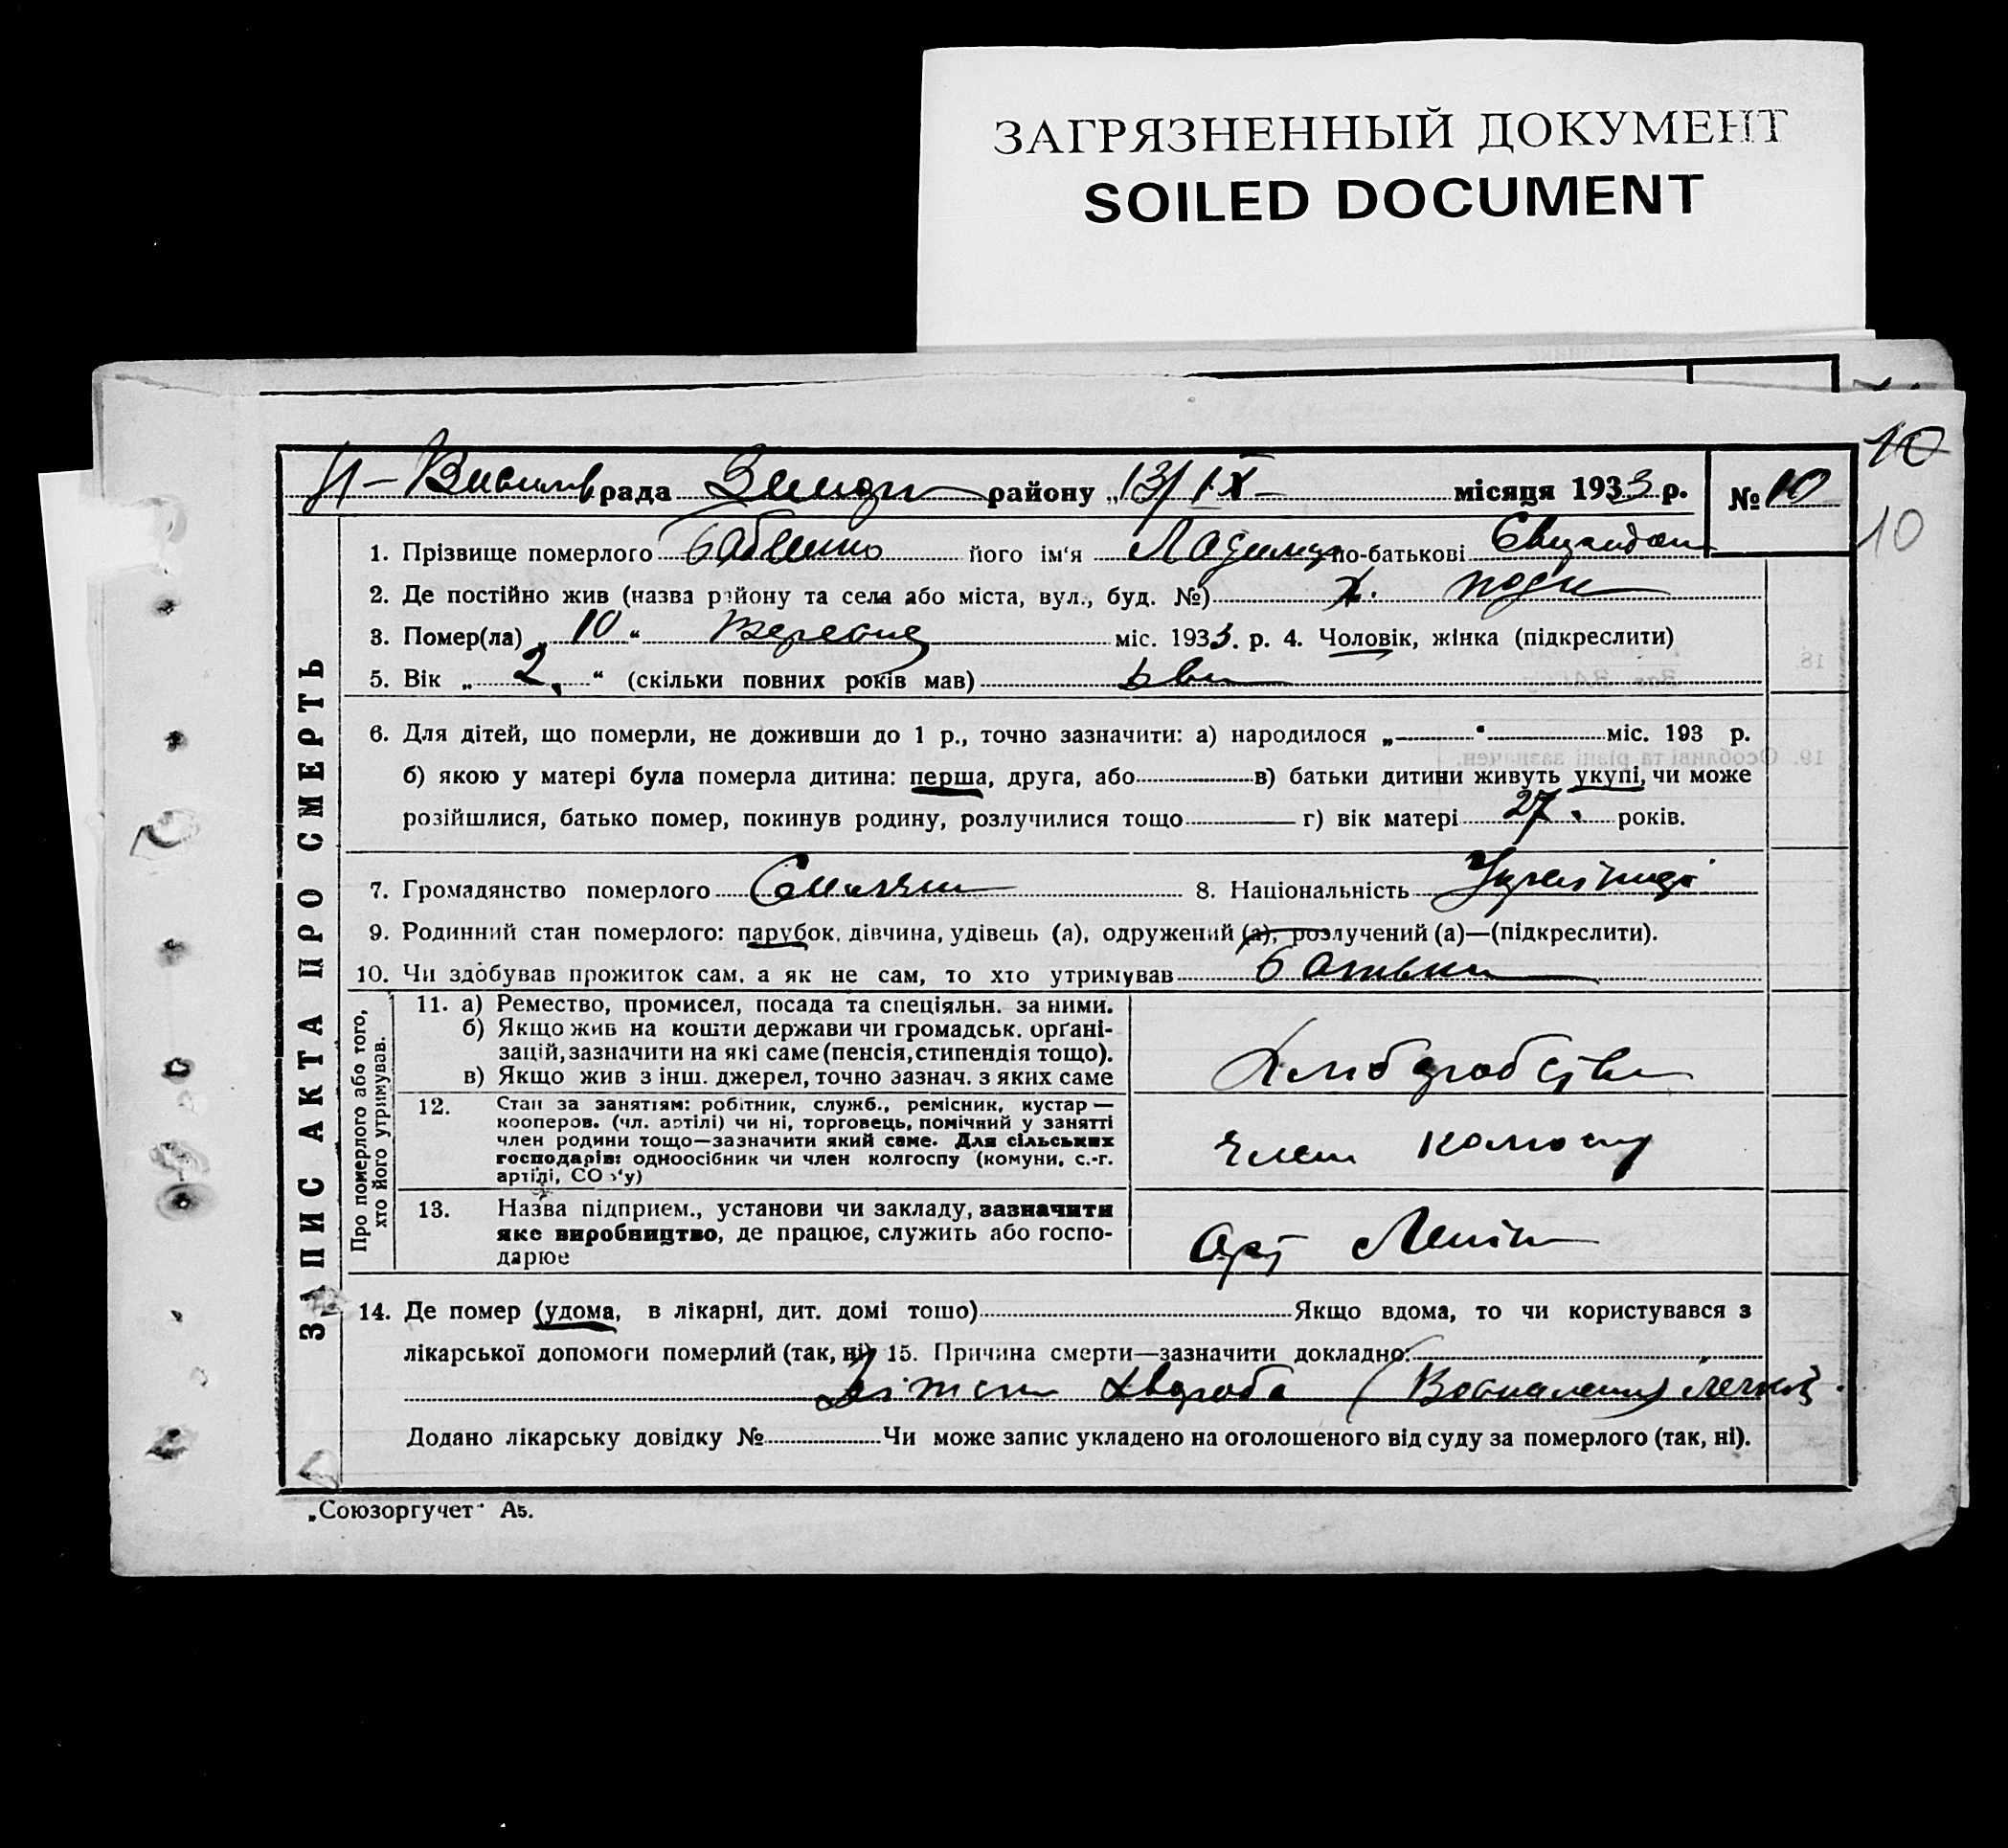 ЗАГРЯЗНЕННЫЙ ДОКУМЕНТ
SOILED DOCUMENT
10
рада району „13/IX місяця 1933 р. № 10
10
1. Прізвище померлого його ім'я по-батькові
2. Де постійно жив (назва району та села або міста, вул., буд. №) х.
3. Помер(ла) „ 10 “ вересня міс. 1933. р. 4. Чоловік, жінка (підкреслити)
5. Вік „ 2 “ (скільки повних років мав) два
6. Для дітей, що померли, не доживши до 1 р., точно зазначити: а) народилося „—“— міс. 193 р.
б) якою у матері була померла дитина: перша, друга, або в) батьки дитини живуть укупі, чи може
розійшлися, батько помер, покинув родину, розлучилися тощо г) вік матері 27 років.
7. Громадянство померлого 8. Національність
9. Родинний стан померлого: парубок, дівчина, удівець (а), одружений (а), розлучений (а)—(підкреслити).
10. Чи здобував прожиток сам, а як не сам, то хто утримував батьки
ЗАПИС АКТА ПРО СМЕРТЬ
Про померлого або того,
хто його утримував.
11. а) Ремество, промисел, посада та спеціяльн. за ними.
б) Якщо жив на кошти держави чи громадськ. орґані-
зацій, зазначити на які саме (пенсія, стипендія тощо).
в) Якщо жив з інш. джерел, точно зазнач. з яких саме
Хліборобство
12. Стан за заняттям: робітник, служб., ремісник, кустар —
кооперов. (чл. артілі) чи ні, торговець, помічний у занятті
член родини тощо—зазначити який саме. Для сільських
господарів: одноосібник чи член колгоспу (комуни, с.-г.
артілі, СОЗ'у)
член колгоспу
13. Назва підприєм., установи чи закладу, зазначити
яке виробництво, де працює, служить або госпо-
дарює
Арт Леніна
14. Де помер (удома, в лікарні, дит. домі тощо) Якщо вдома, то чи користувався з
лікарської допомоги померлий (так, ні) 15. Причина смерти—зазначити докладно:
хвороба (Воспаление легких)
Додано лікарську довідку № Чи може запис укладено на оголошеного від суду за померлого (так, ні).
„Союзоргучет“ А5.
18.
19. Особливі та різні зазначен.